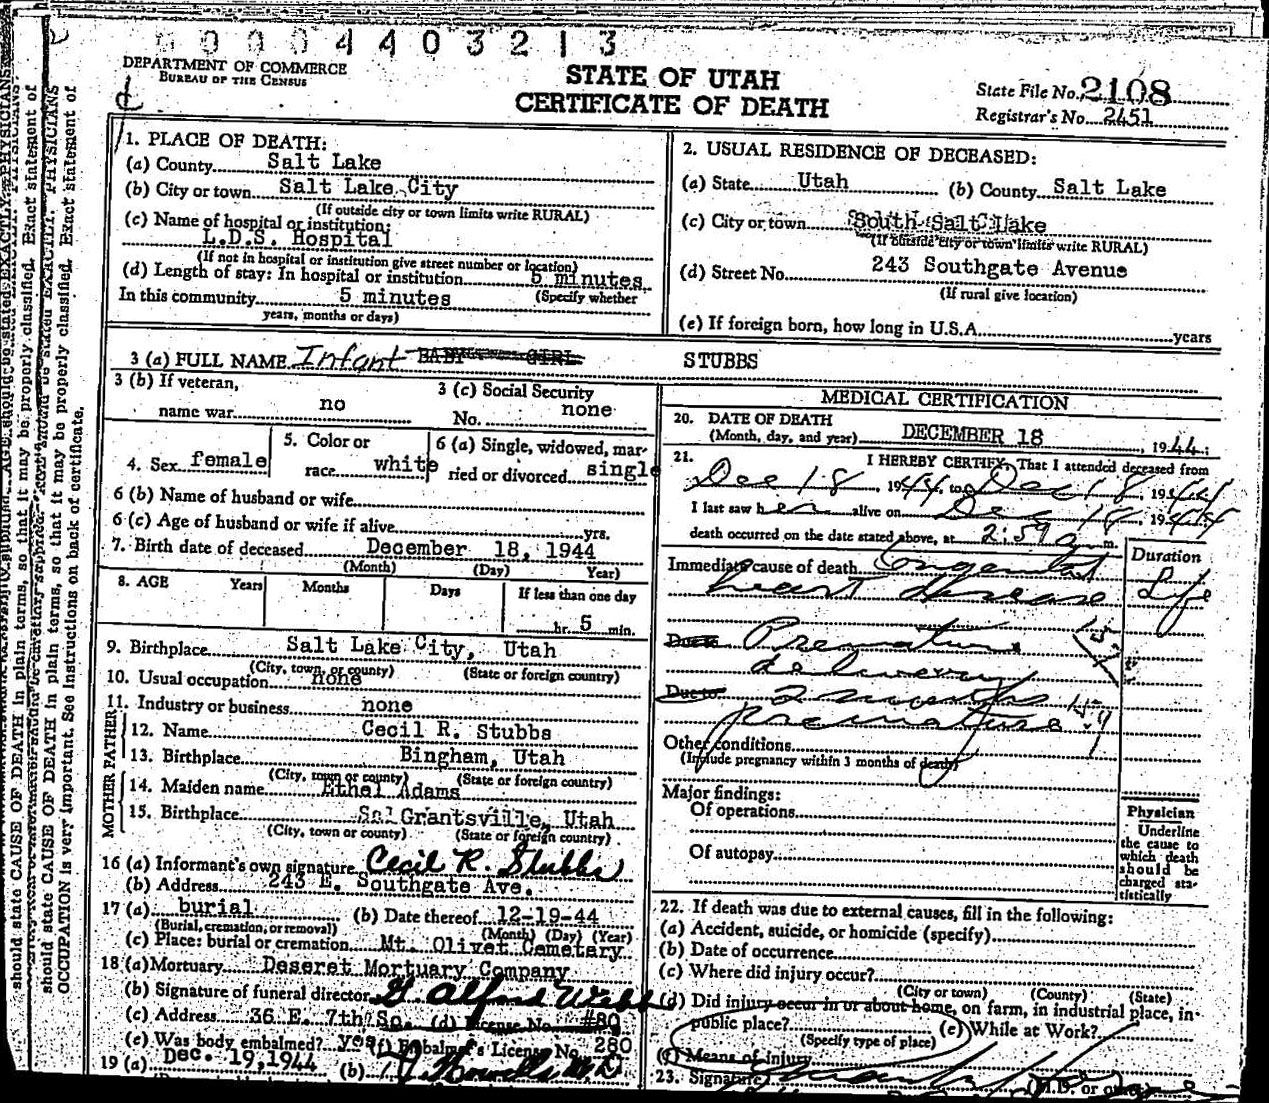 00004403213
DEPARTMENT OF COMMERCE
BUREAU OF THE CENSUS
STATE OF UTAH
CERTIFICATE OF DEATH
State File No. 2108
Registrar's No. 2451
1. PLACE OF DEATH:
(a) County Salt Lake
(b) City or town Salt Lake City
(If outside city or town limits write RURAL)
(c) Name of hospital or institution:
L.D.S. Hospital
(If not in hospital or institution give street number or location)
(d) Length of stay: In hospital or institution 5 minutes
(Specify whether
In this community 5 minutes
years, months or days)
2. USUAL RESIDENCE OF DECEASED:
(a) State Utah (b) County Salt Lake
(c) City or town South Salt Lake
(If outside city or town limits write RURAL)
(d) Street No. 243 Southgate Avenue
(If rural give location)
(e) If foreign born, how long in U.S.A. years
3 (a) FULL NAME Infant BABY GIRL STUBBS
3 (b) If veteran,
name war no
3 (c) Social Security
No. none
4. Sex female
5. Color or
race white
6 (a) Single, widowed, mar-
ried or divorced single
6 (b) Name of husband or wife
6 (c) Age of husband or wife if alive yrs.
7. Birth date of deceased December 18, 1944
(Month) (Day) Year)
8. AGE Years Months Days If less than one day
hr. 5 min.
9. Birthplace Salt Lake City, Utah
(City, town, or county) (State or foreign country)
10. Usual occupation none
11. Industry or business none
FATHER
12. Name Cecil R. Stubbs
13. Birthplace Bingham, Utah
(City, town or county) (State or foreign country)
MOTHER
14. Maiden name Ethel Adams
15. Birthplace Sal Grantsville, Utah
(City, town or county) (State or foreign country)
16 (a) Informant's own signature Cecil R. Stubbs
(b) Address 243 E. Southgate Ave.
17 (a) burial (b) Date thereof 12-19-44
(Burial, cremation, or removal) (Month) (Day) (Year)
(c) Place: burial or cremation Mt. Olivet Cemetary
18 (a) Mortuary Deseret Mortuary Company
(b) Signature of funeral director G. Alford Webb
(c) Address 36 E. 7th So. (d) License No. #80
(e) Was body embalmed? yes (f) Embalmer's License No. 280
19 (a) Dec. 19, 1944 (b)
MEDICAL CERTIFICATION
20. DATE OF DEATH
(Month, day, and year) DECEMBER 18 1944
21. I HEREBY CERTIFY, That I attended deceased from
Dec 18, 1944, to Dec 18, 1944
I last saw her alive on Dec 18, 1944
death occurred on the date stated above, at 2:59 a m.
Duration
Immediate cause of death Congenital
heart disease Life
Due to Premature
delivery
Due to 2 months 159
premature
Other conditions
(Include pregnancy within 3 months of death)
Major findings:
Of operations
Of autopsy
Physician
Underline
the cause to
which death
should be
charged sta-
tistically
22. If death was due to external causes, fill in the following:
(a) Accident, suicide, or homicide (specify)
(b) Date of occurrence
(c) Where did injury occur?
(City or town) (County) (State)
(d) Did injury occur in or about home, on farm, in industrial place, in
public place? (e) While at Work?
(Specify type of place)
(f) Means of injury
23. Signature (M.D. or other)
should state CAUSE OF DEATH in plain terms, so that it may be properly classified. Exact statement of
OCCUPATION is very important. See instructions on back of certificate.